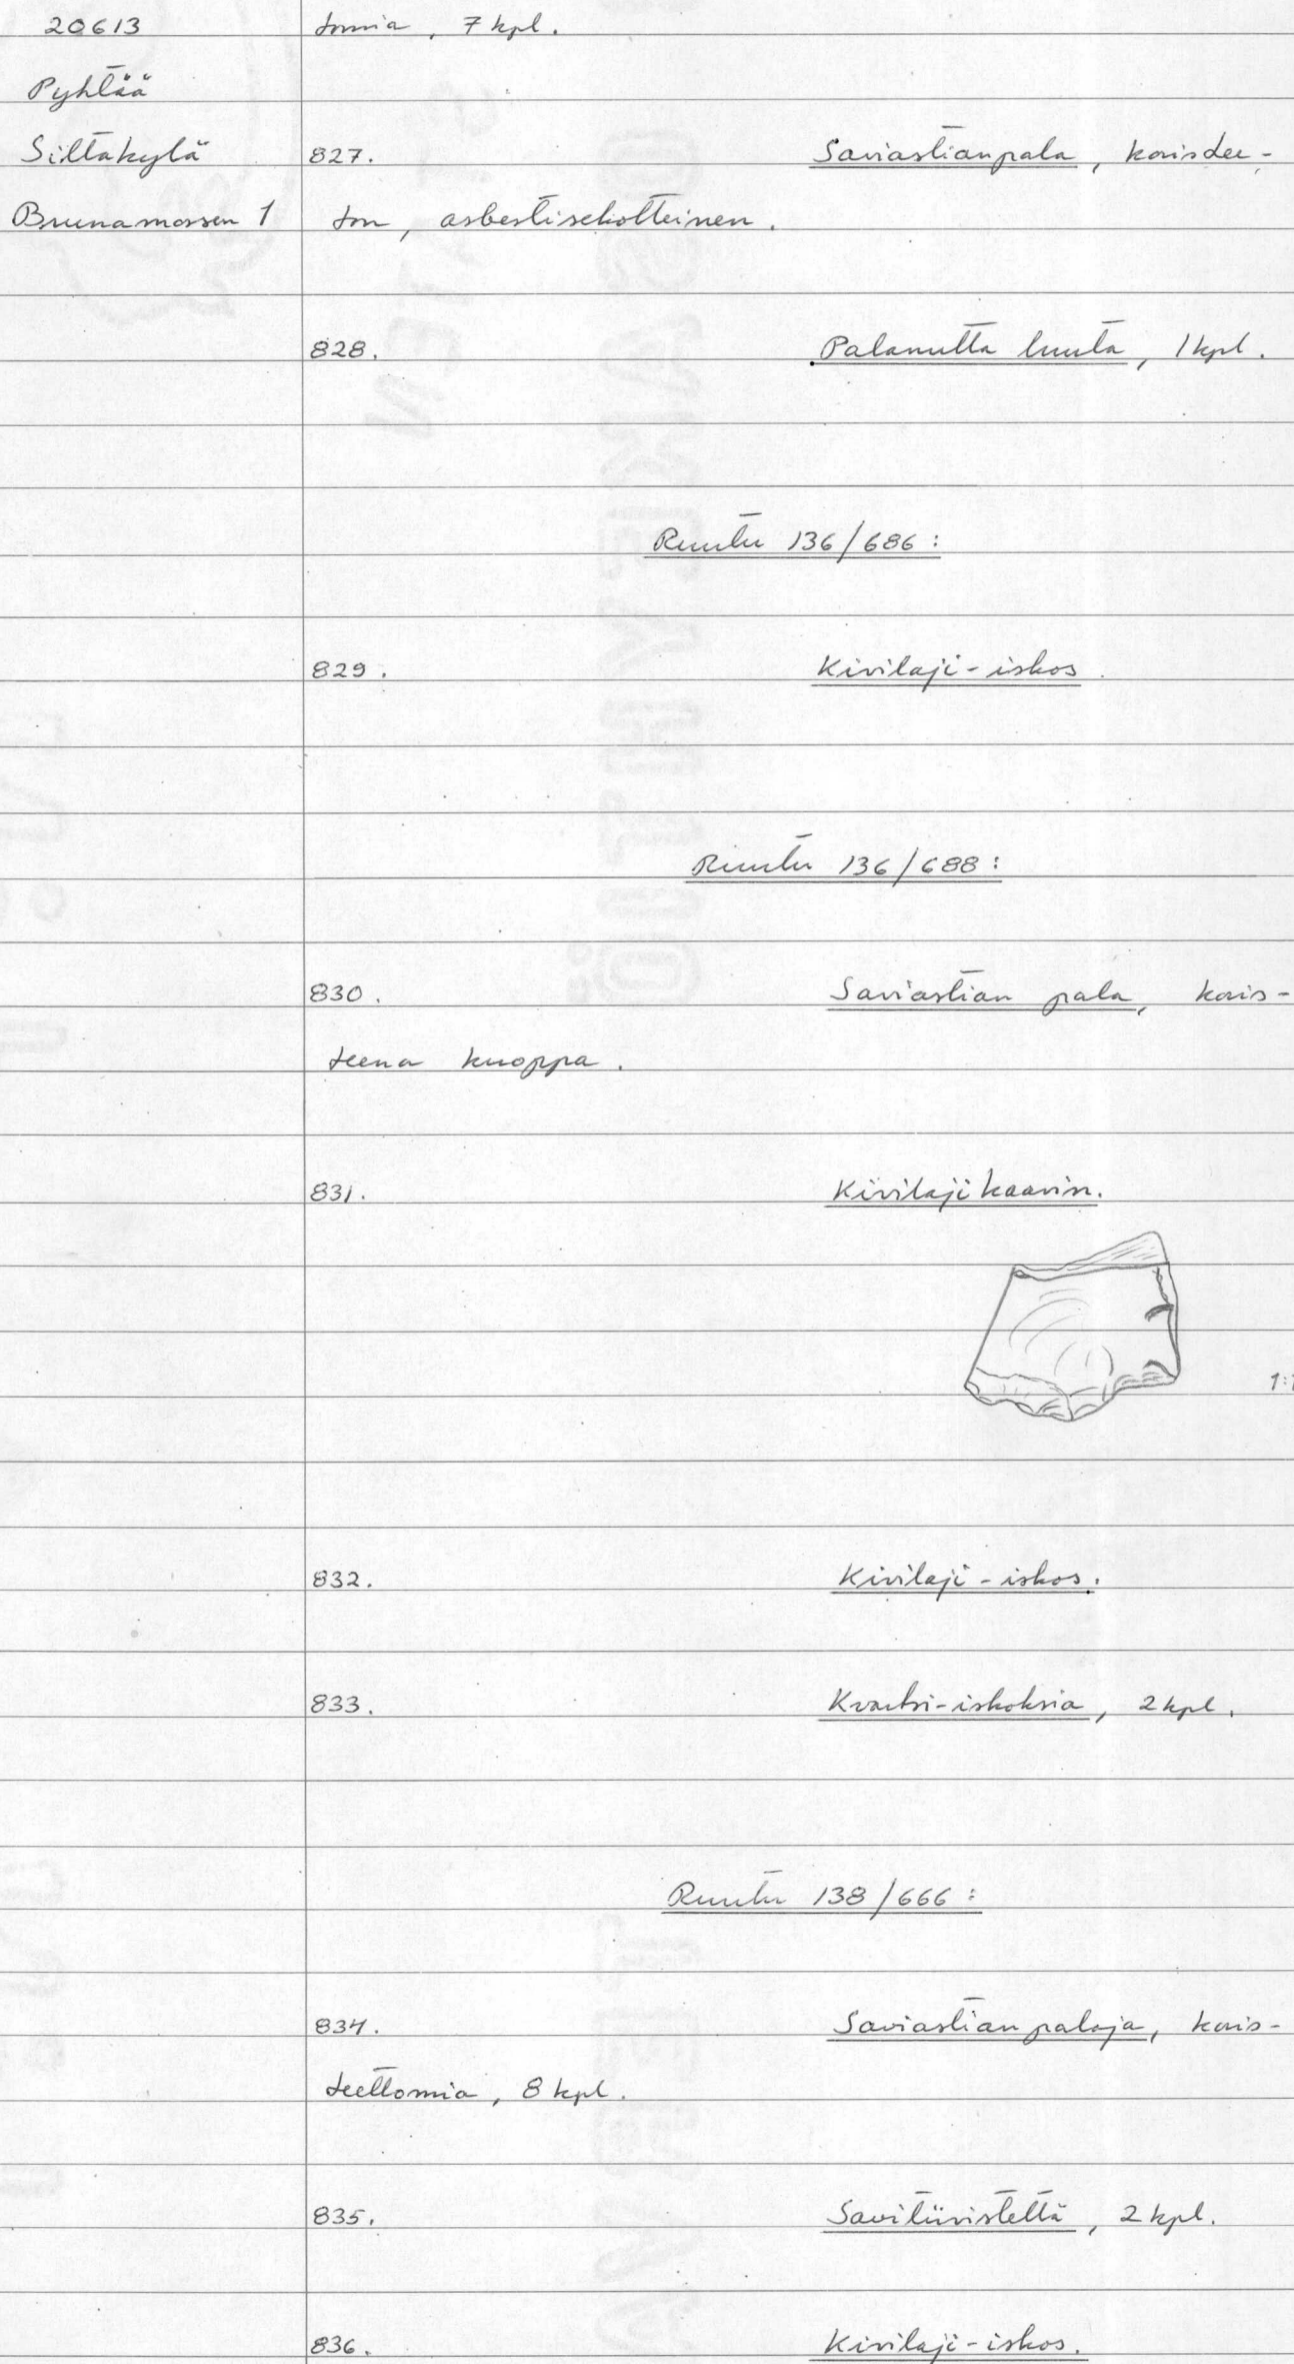 20613 tomia, 7 kpl.
Pyhtää
Siltakylä 827. Saviastianpala, koristee-
Brunamossen 1 ton, asbestisekotteinen.
828. Palanutta luuta, 1 kpl.
Ruutu 136/686:
829. Kivilaji-iskos
Ruutu 136/688:
830. Saviastian pala, koris-
teena kuoppa.
831. Kivilajikaavin.
1:1
832. Kivilaji-iskos.
833. Kvartsi-iskoksia, 2 kpl.
Ruutu 138/666:
834. Saviastianpaloja, koris-
teettomia, 8 kpl.
835. Savitiivistettä, 2 kpl.
836. Kivilaji-iskos.